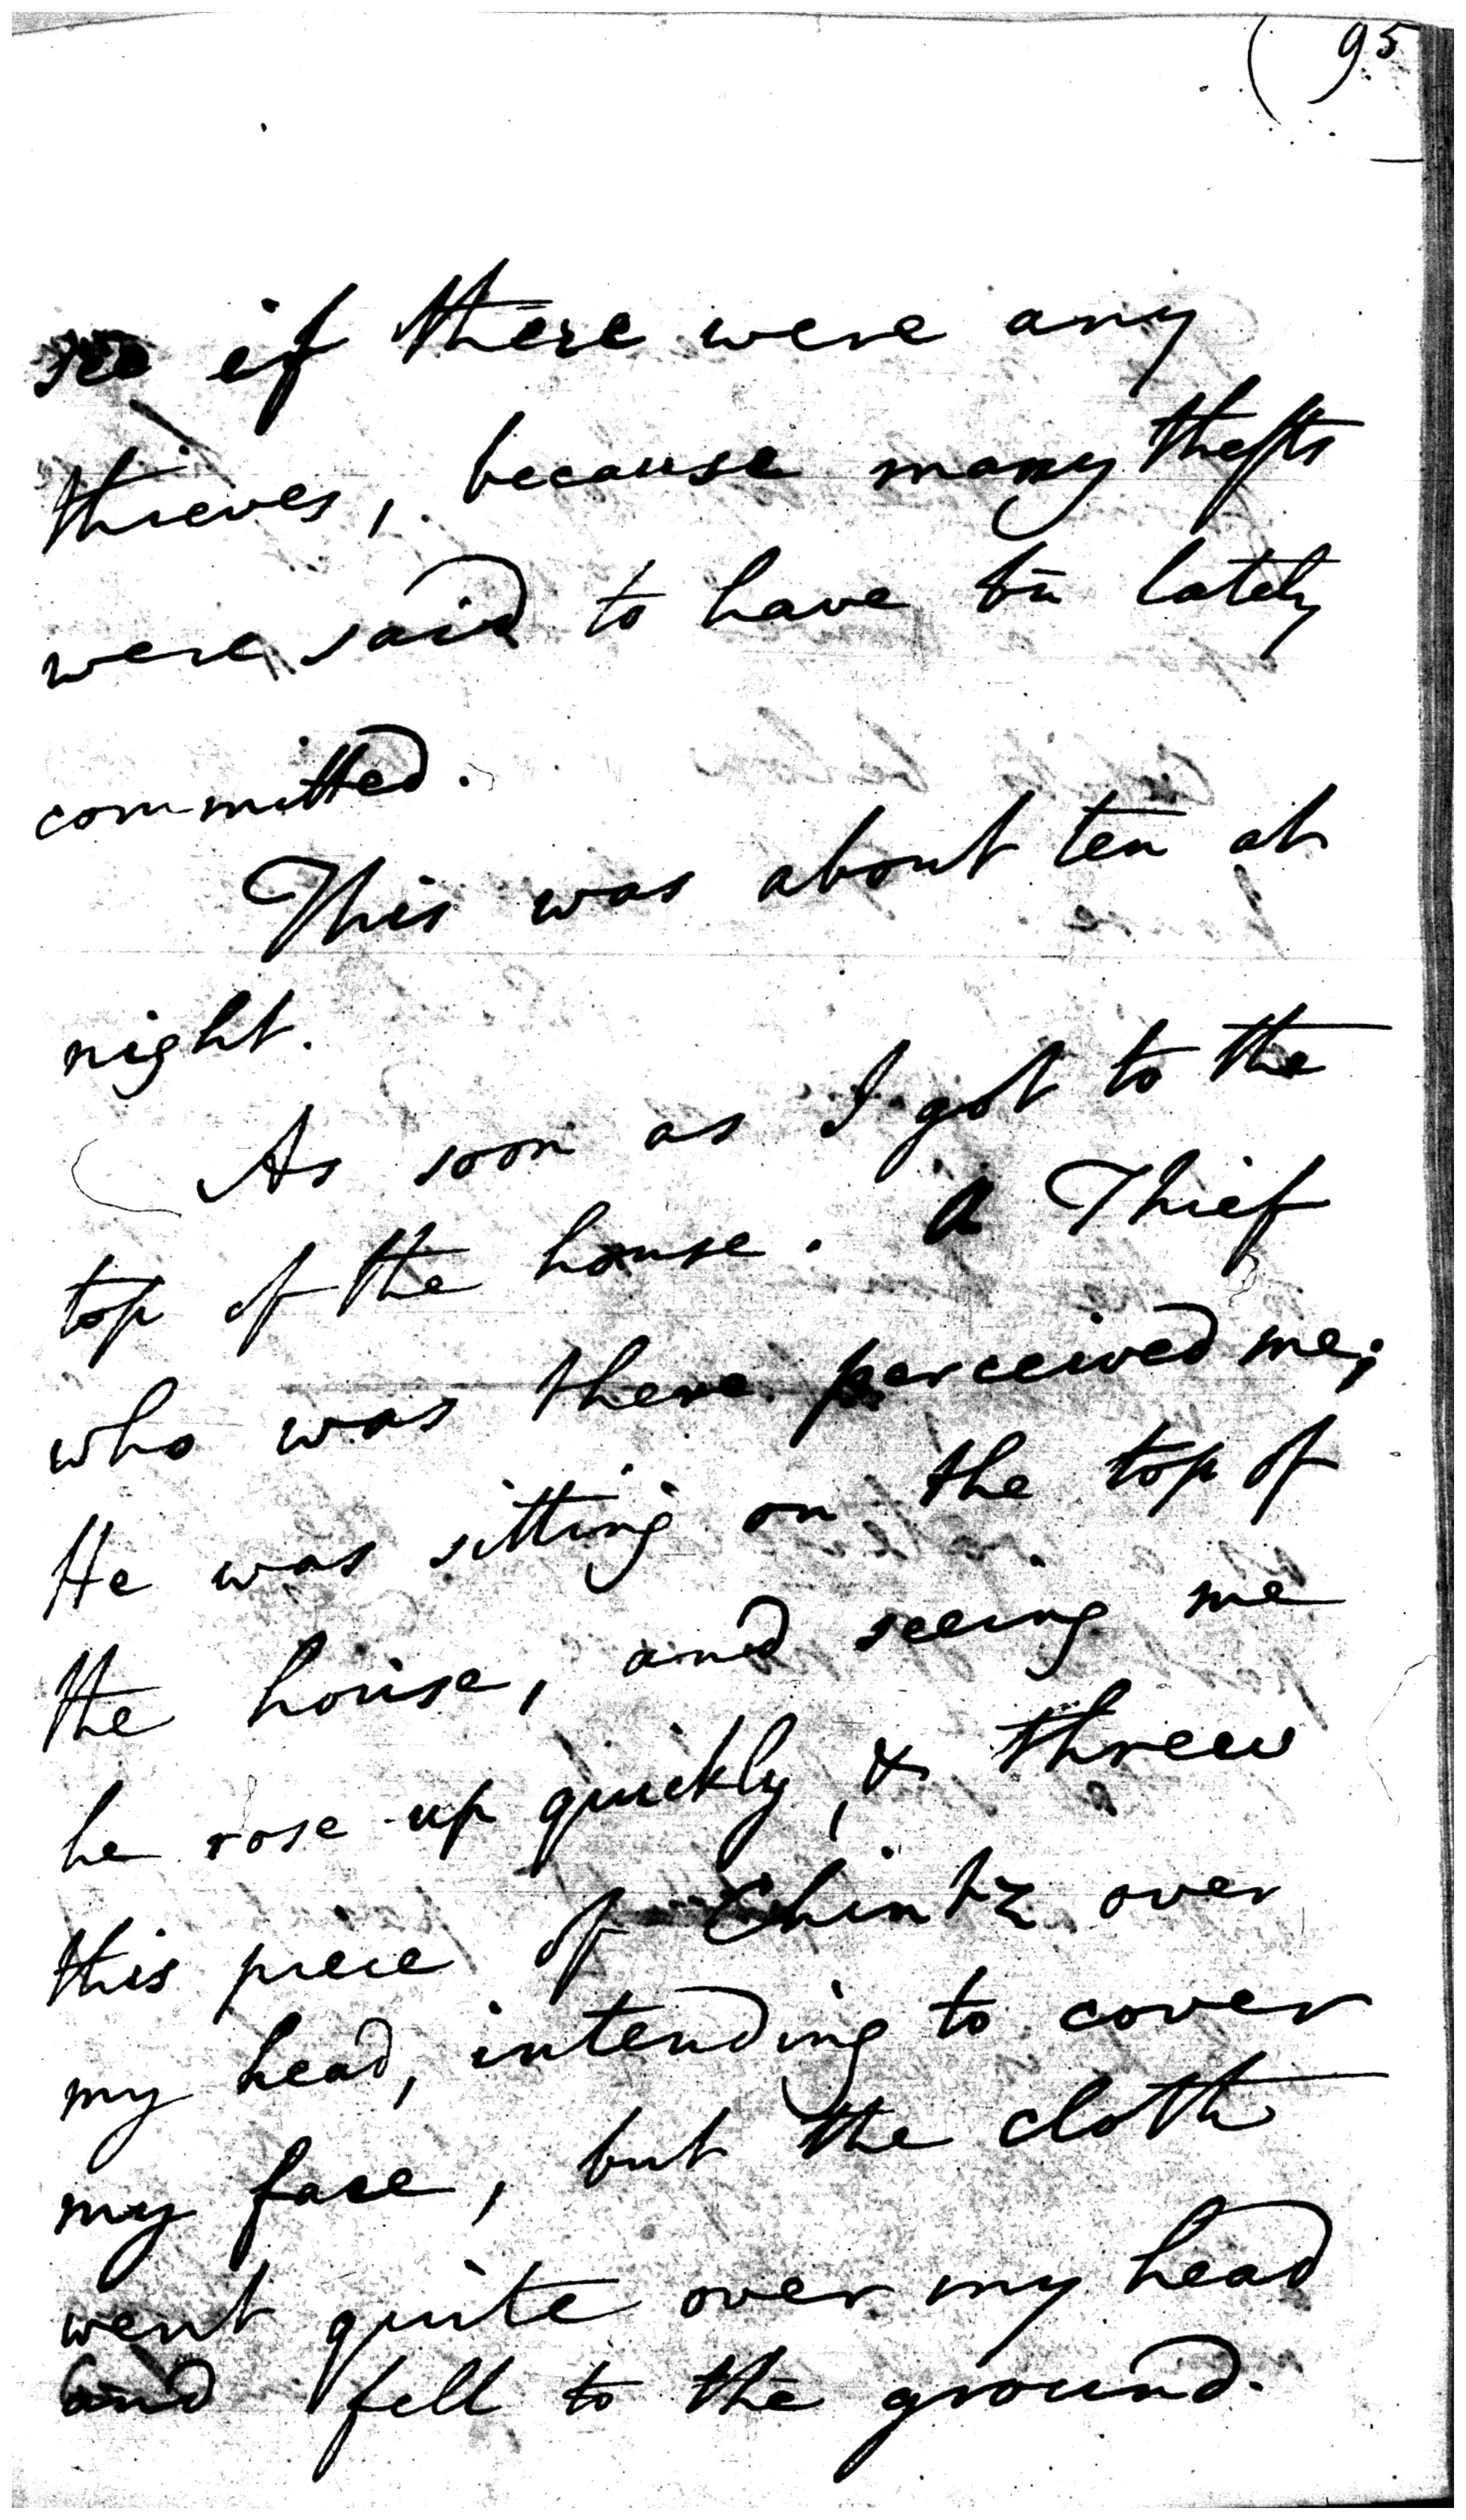 ( 95
see if there were any
thieves, because many thefts
were said to have bn̄ lately
committed.
This was about ten at
night.
As soon as I got to the
top of the house. A Thief
who was there perceived me;
He was sitting on the top of
the house, and seeing me
he rose up quickly, & threw
this piece of Chintz over
my head, intending to cover
my face, but the cloth
went quite over my head
and fell to the ground.